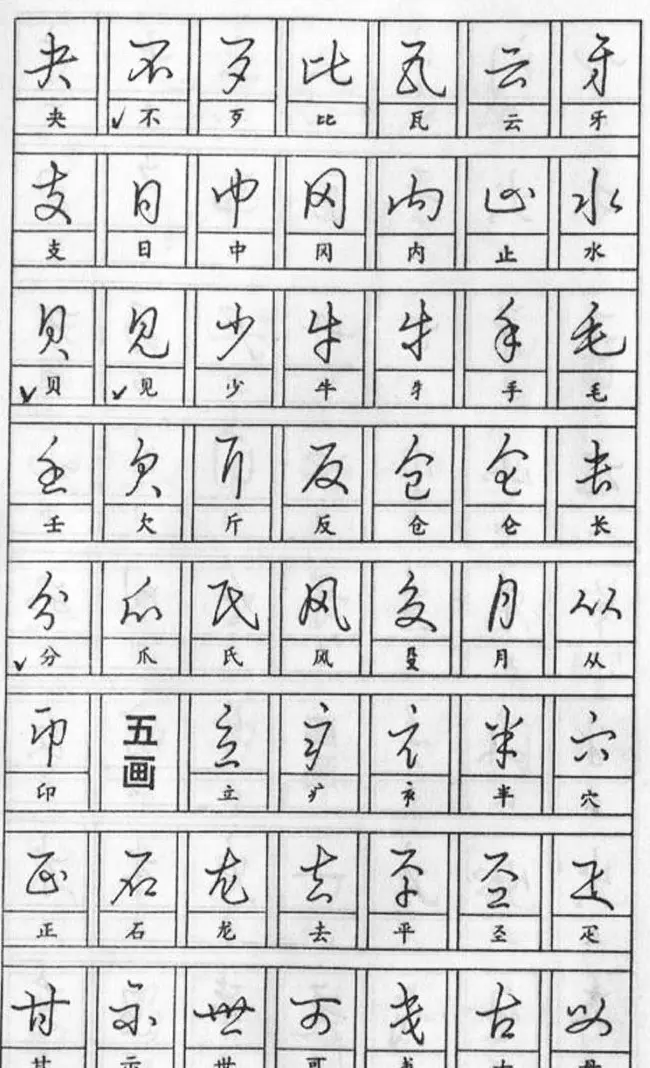 夬 不 歹 比 瓦 云 牙
夬 不 歹 比 瓦 云 牙
支 日 中 冈 内 止 水
支 日 中 冈 内 止 水
贝 见 少 牛 牜 手 毛
贝 见 少 牛 牜 手 毛
壬 欠 斤 反 仓 仑 长
壬 欠 斤 反 仓 仑 长
分 爪 氏 风 殳 月 从
分 爪 氏 风 殳 月 从
印 五画 立 疒 衤 半 穴
印 立 疒 衤 半 穴
正 石 龙 去 平 圣 疋
正 石 龙 去 平 圣 疋
甘 示 世 可 古
甘 示 世 可